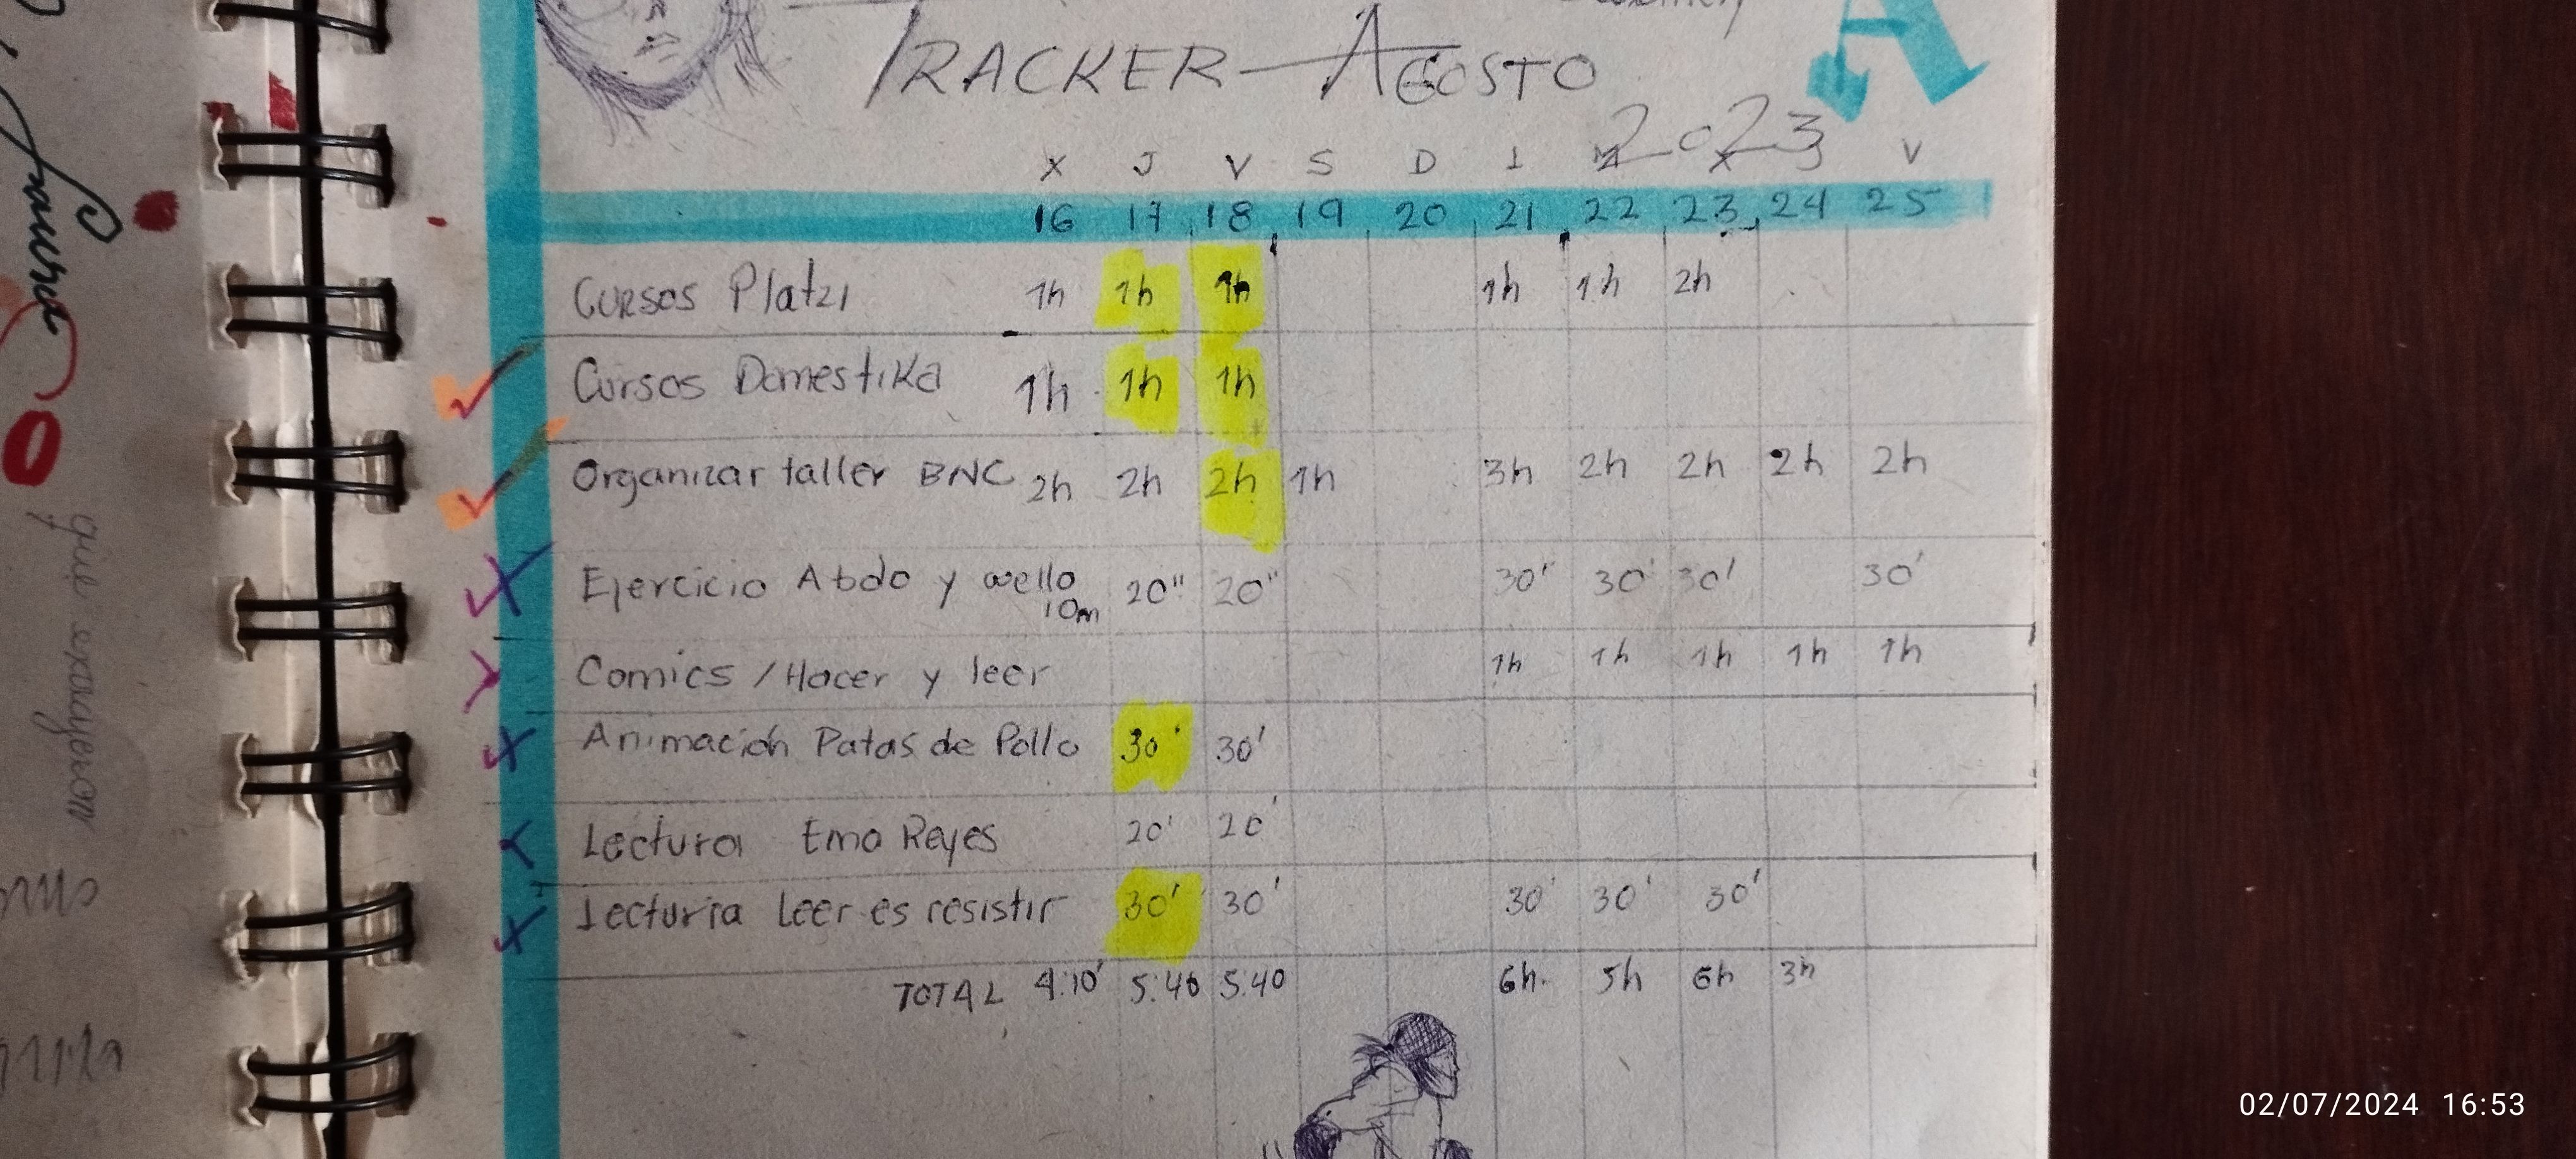 TRACKER - AGOSTO
2023
X J V S D L M X J V
16 17 18 19 20 21 22 23 24 25
Cursos Platzi 1h 1h 1h 1h 1h 2h
Cursos Domestika 1h 1h 1h
Organizar taller BNC 2h 2h 2h 1h 3h 2h 2h 2h 2h
Ejercicio Abdo y cuello 10m 20" 20" 30" 30' 30' 30'
Comics / Hacer y leer 1h 1h 1h 1h 1h
Animación Patas de Pollo 30' 30'
Lectura Ema Reyes 20' 20'
Lecturia Leer es resistir 30' 30' 30' 30' 30'
TOTAL 4:10' 5:40 5:40 6h. 5h 6h 3h
que extrayeron
02/07/2024 16:53